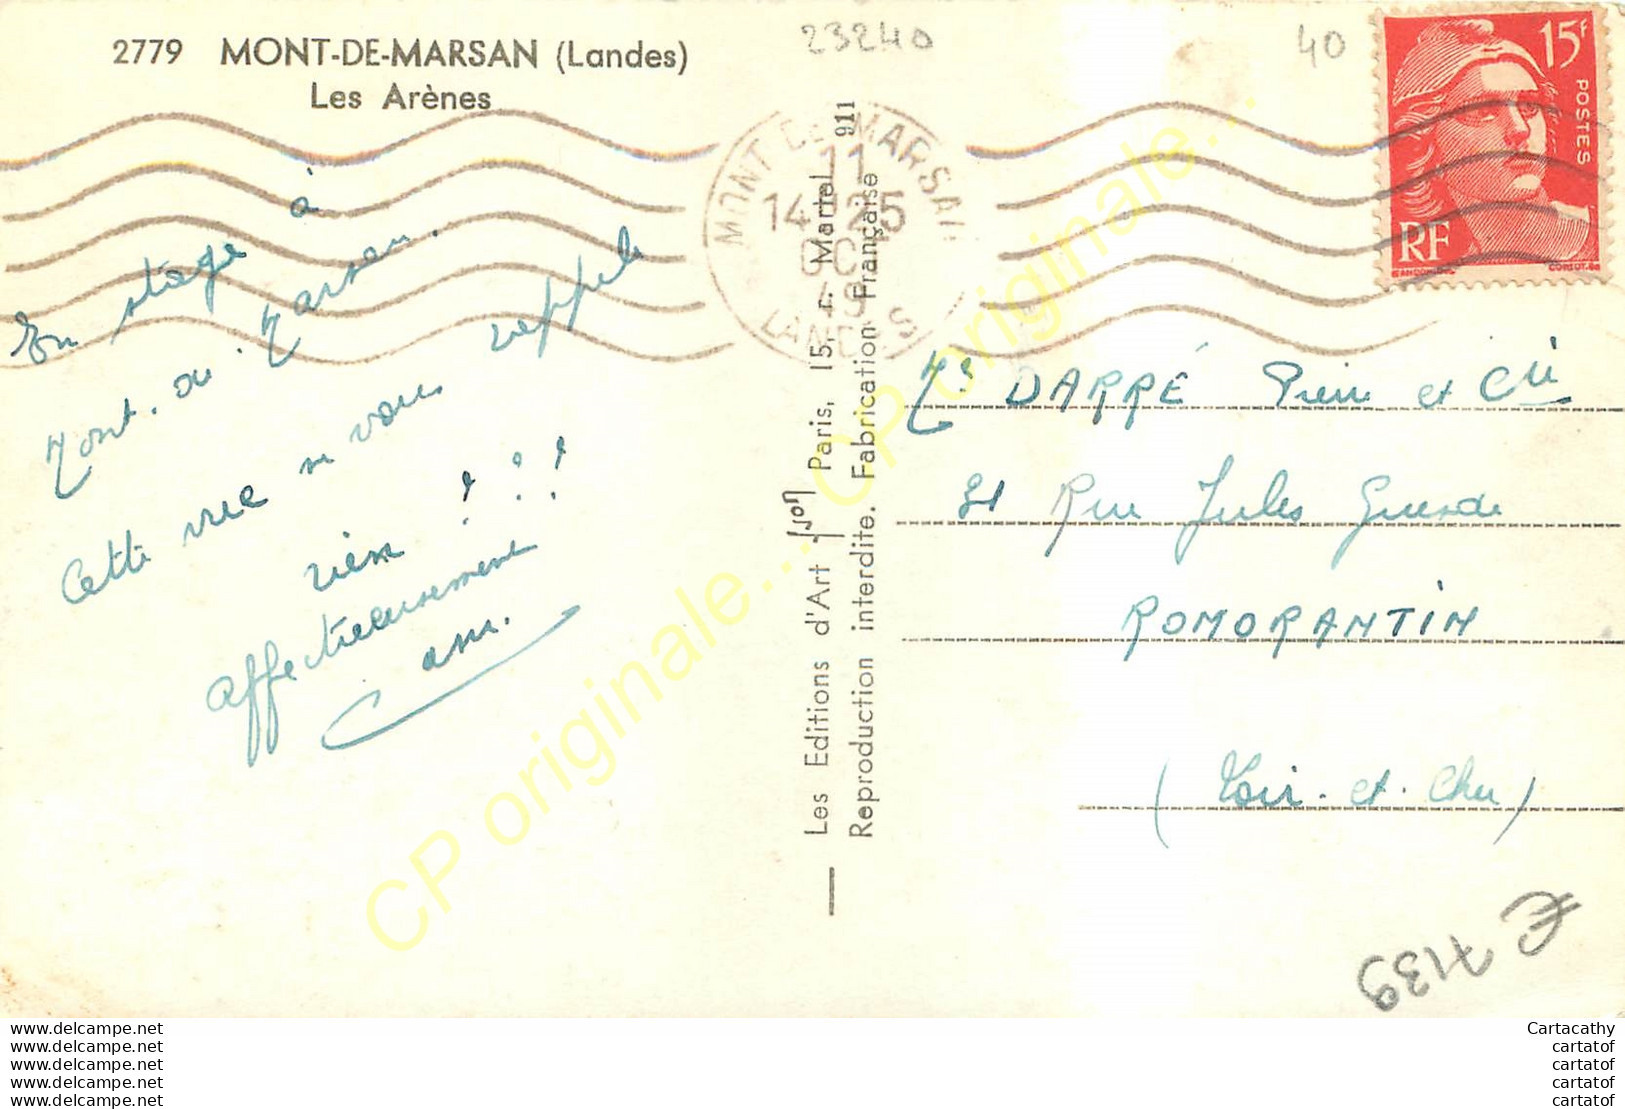 2779 MONT-DE-MARSAN (Landes)
Les Arènes
23240
40
15F
POSTES
RF
MONT DE MARSAN
11
14 H 25
OC
LANDES
En stage à
Mont. de. Marsan.
Cette vue ne vous rappelle
rien ! ! !
affectueusement
Les Editions d'Art Yvon, Paris, 15, r. Martel 911
Reproduction interdite. Fabrication Française
Ms DARRÉ Pierre et Cie
Rue Jules
ROMORANTIN
(Loir. et. Cher)
€ 7139
CP originale... CP originale... CP originale...
www.delcampe.net
www.delcampe.net
www.delcampe.net
www.delcampe.net
www.delcampe.net
Cartacathy
cartatof
cartatof
cartatof
cartatof